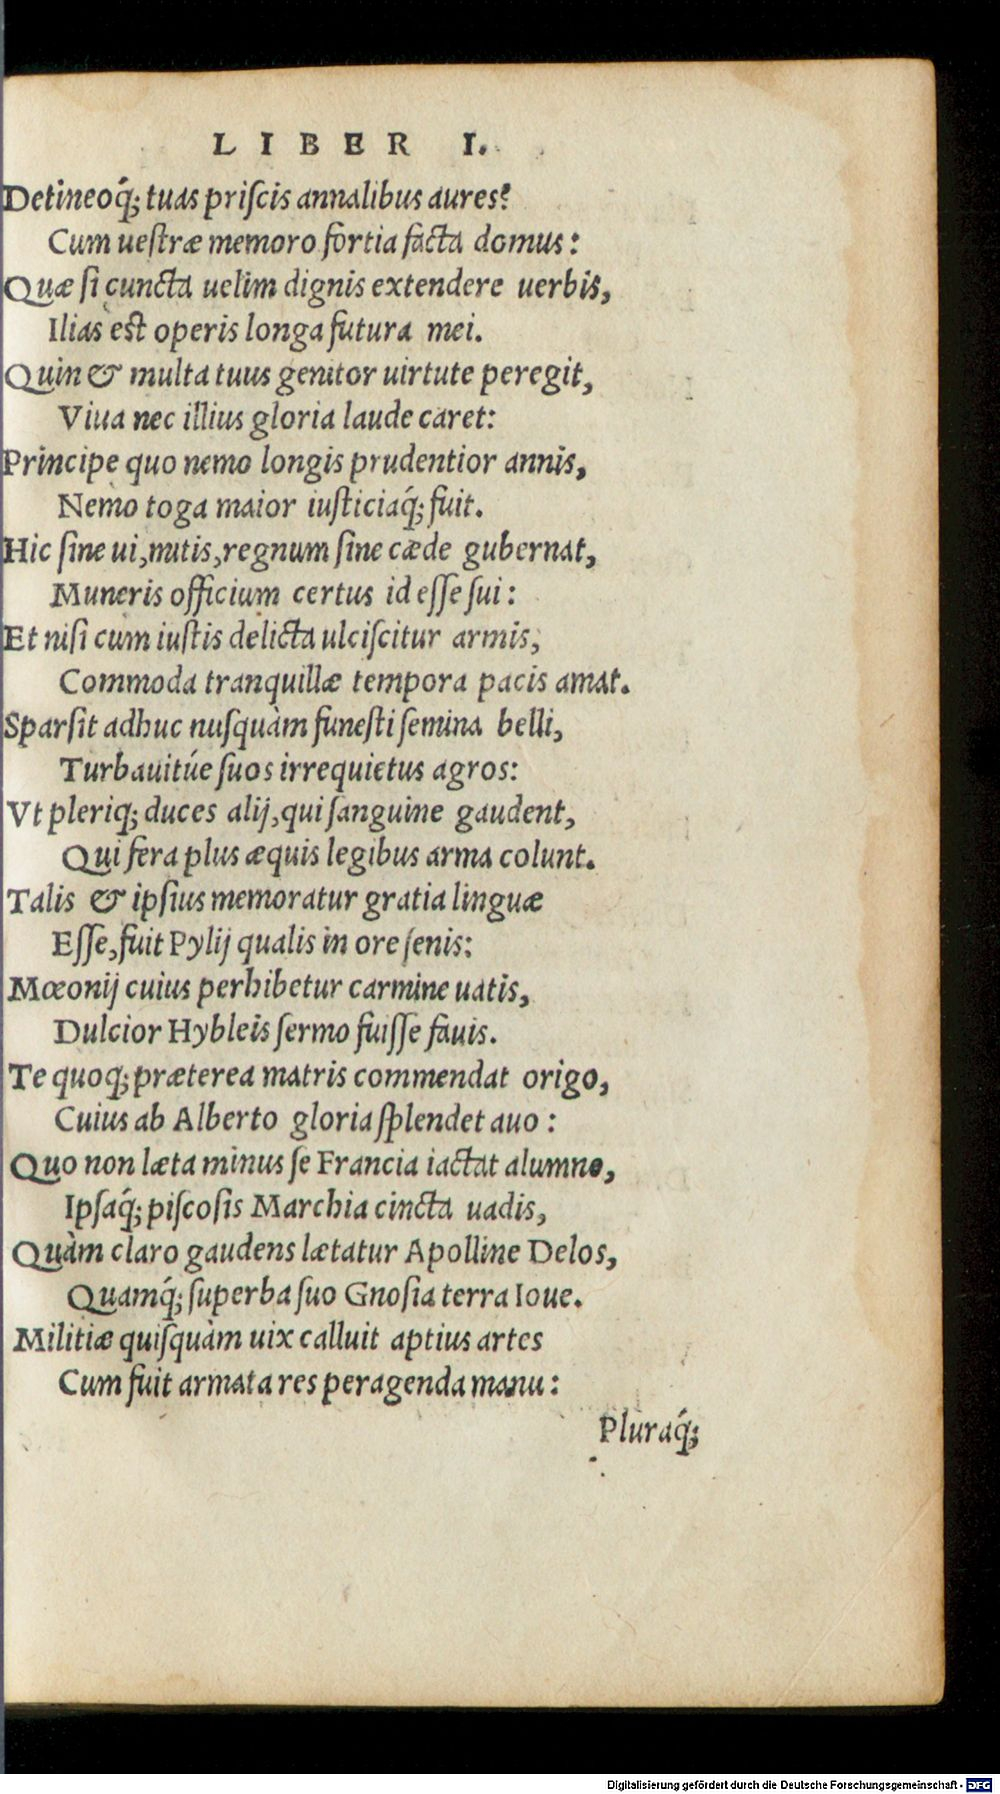 LIBER I.
Detineoq́; tuas priſcis annalibus aures?
Cum ueſtræ memoro fortia facta domus:
Quæ ſi cuncta uelim dignis extendere uerbis,
Ilias est operis longa futura mei.
Quin & multa tuus genitor uirtute peregit,
Viua nec illius gloria laude caret:
Principe quo nemo longis prudentior annis,
Nemo toga maior iuſticiaq́; fuit.
Hic ſine ui, mitis, regnum ſine cæde gubernat,
Muneris officium certus id eſſe ſui:
Et niſi cum iuſtis delicta ulciſcitur armis,
Commoda tranquillæ tempora pacis amat.
Sparſit adhuc nuſquàm funeſti ſemina belli,
Turbauitúe ſuos irrequietus agros:
Vt pleriq; duces alij, qui ſanguine gaudent,
Qui fera plus æquis legibus arma colunt.
Talis & ipſius memoratur gratia linguæ
Eſſe, fuit Pylij qualis in ore ſenis:
Mœonij cuius perhibetur carmine uatis,
Dulcior Hybleis ſermo fuiſſe fauis.
Te quoq; præterea matris commendat origo,
Cuius ab Alberto gloria ſplendet auo:
Quo non læta minus ſe Francia iactat alumno,
Ipſaq́; piſcoſis Marchia cincta uadis,
Quàm claro gaudens lætatur Apolline Delos,
Quamq́; ſuperba ſuo Gnoſia terra Ioue.
Militiæ quiſquàm uix calluit aptius artes
Cum fuit armata res peragenda manu:
Pluraq́;
Digitalisierung gefördert durch die Deutsche Forschungsgemeinschaft - DFG